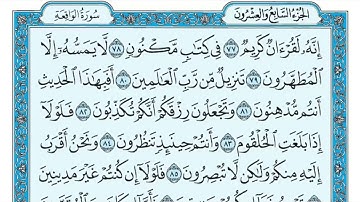 الجزء السابع والعشرون سورة الواقعة
إِنَّهُۥ لَقُرْءَانٌ كَرِيمٌ ٧٧ فِى كِتَٰبٍ مَّكْنُونٍ ٧٨ لَّا يَمَسُّهُۥٓ إِلَّا
ٱلْمُطَهَّرُونَ ٧٩ تَنزِيلٌ مِّن رَّبِّ ٱلْعَٰلَمِينَ ٨٠ أَفَبِهَٰذَا ٱلْحَدِيثِ
أَنتُم مُّدْهِنُونَ ٨١ وَتَجْعَلُونَ رِزْقَكُمْ أَنَّكُمْ تُكَذِّبُونَ ٨٢ فَلَوْلَآ
إِذَا بَلَغَتِ ٱلْحُلْقُومَ ٨٣ وَأَنتُمْ حِينَئِذٍ تَنظُرُونَ ٨٤ وَنَحْنُ أَقْرَبُ
إِلَيْهِ مِنكُمْ وَلَٰكِن لَّا تُبْصِرُونَ ٨٥ فَلَوْلَآ إِن كُنتُمْ غَيْرَ مَدِينِينَ